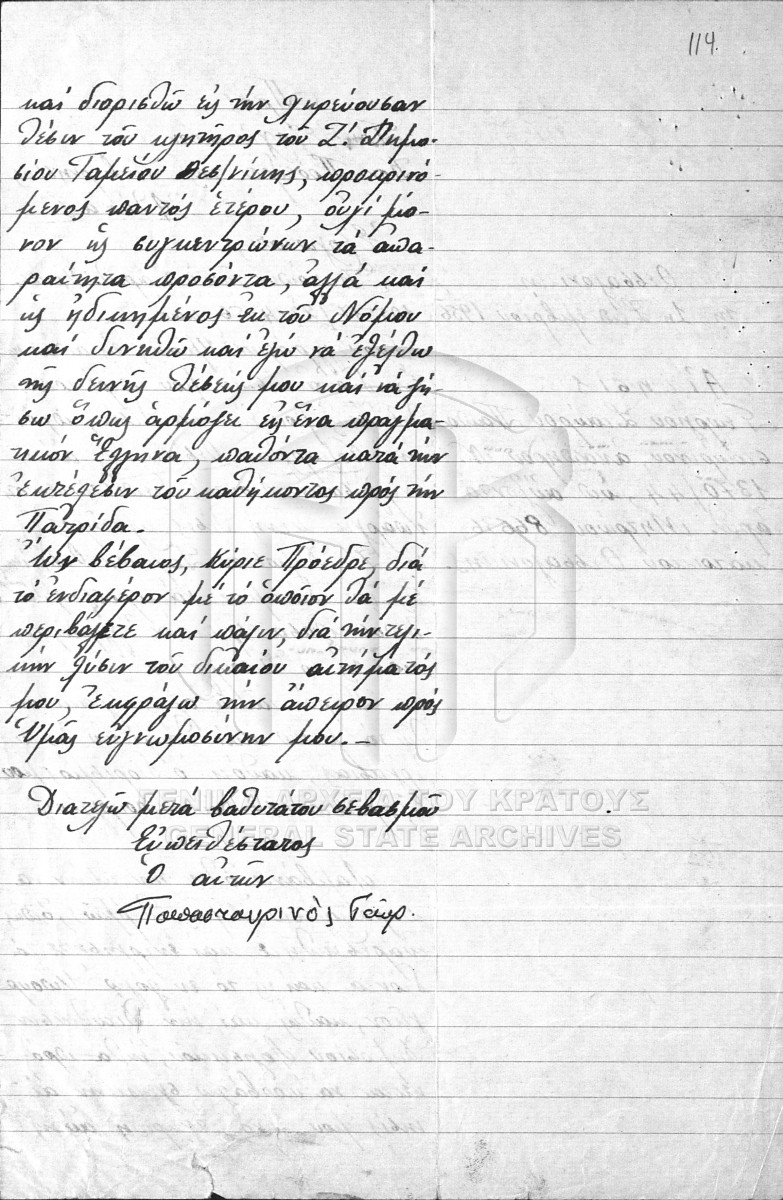 114
καί διορισθῶ εἰς τήν χηρεύουσαν
θέσιν τοῦ κλητῆρος τοῦ Ζ! Δημο-
σίου Ταμείου Θεσ/νίκης, προκρινό-
μενος παντός ἑτέρου, οὐχί μό-
νον ὡς συγκεντρώνων τά ἀπα-
ραίτητα προσόντα, ἀλλά καί
ὡς ἠδικημένος ἐκ τοῦ Νόμου
καί δυνηθῶ καί ἐγώ νά ἐξέλθω
τῆς δεινῆς θέσεώς μου καί νά ζή-
σω ὅπως ἁρμόζει εἰς ἕνα πραγμα-
τικόν Ἕλληνα, παθόντα κατά τήν
ἐκτέλεσιν τοῦ καθήκοντος πρός τήν
Πατρίδα.
Ὤν βέβαιος, Κύριε Πρόεδρε, διά
τό ἐνδιαφέρον μέ τό ὁποῖον θά μέ
περιβάλετε καί πάλιν, διά τήν τελι-
κήν λύσιν τοῦ δικαίου αἰτήματός
μου, ἐκφράζω τήν ἄπειρον πρός
Ὑμᾶς εὐγνωμοσύνην μου.-
Διατελῶ μετά βαθυτάτου σεβασμοῦ
Εὐπειθέστατος
Ὁ αἰτῶν
Παπασταυρινός Γεώρ.
ΓΕΝΙΚΑ ΑΡΧΕΙΑ ΤΟΥ ΚΡΑΤΟΥΣ
GENERAL STATE ARCHIVES